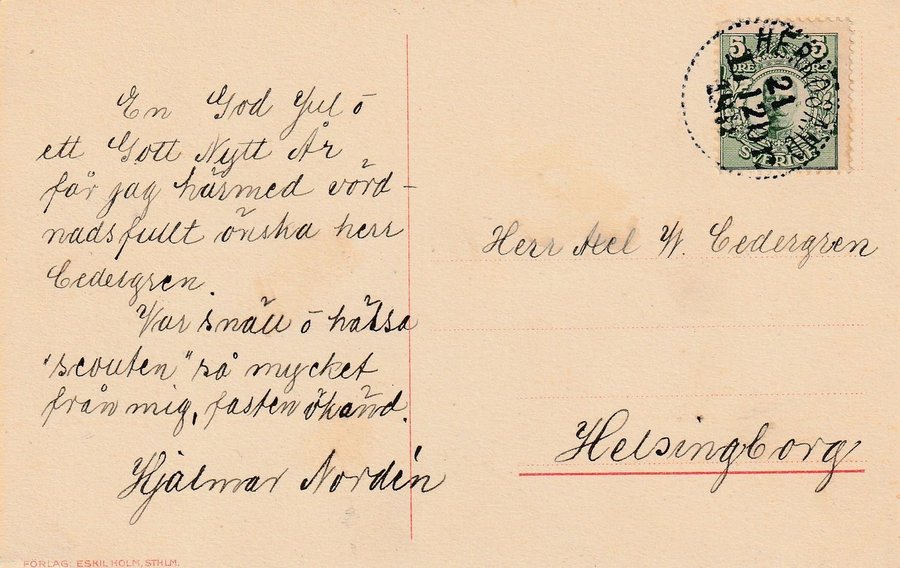 En God Jul o
ett Gott Nytt År
får jag härmed vörd-
nadsfullt önska herr
Cedergren.
Var snäll o hälsa
"scouten" så mycket
från mig, fasten okänd.
Hjalmar Nordén
FÖRLAG: ESKIL HOLM, STHLM.
5 5
ÖRE
SVERIGE
21 12
Herr Axel W. Cedergren
Helsingborg